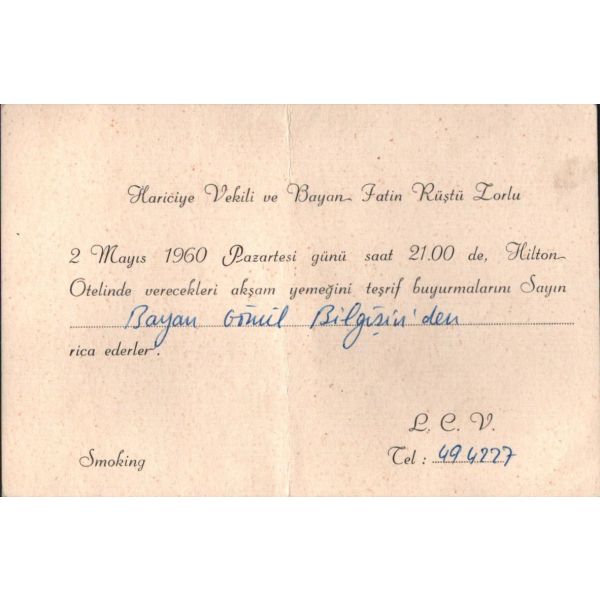 Hariciye Vekili ve Bayan Fatin Rüştü Zorlu
2 Mayıs 1960 Pazartesi günü saat 21.00 de, Hilton
Otelinde verecekleri akşam yemeğini teşrif buyurmalarını Sayın
Bayan Gönül Bilgişin'den
rica ederler.
L. C. V.
Smoking
Tel : 494227